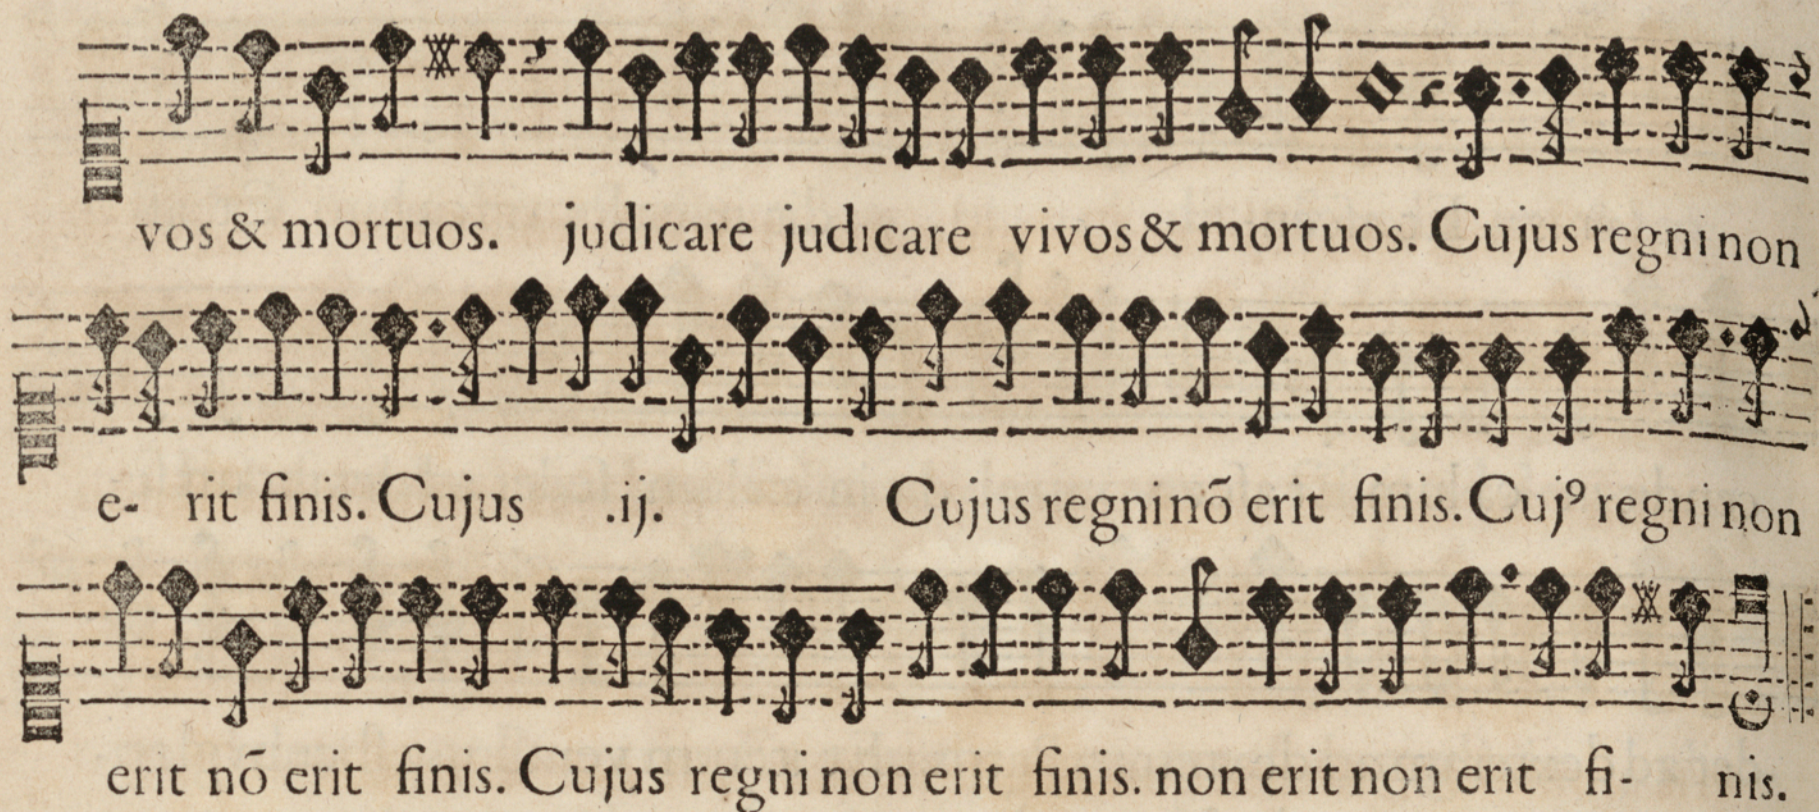 vos & mortuos. judicare judicare vivos & mortuos. Cujus regni non
e- rit finis. Cujus .ij. Cujus regni nõ erit finis. Cujꝰ regni non
erit nõ erit finis. Cujus regni non erit finis. non erit non erit fi- nis.